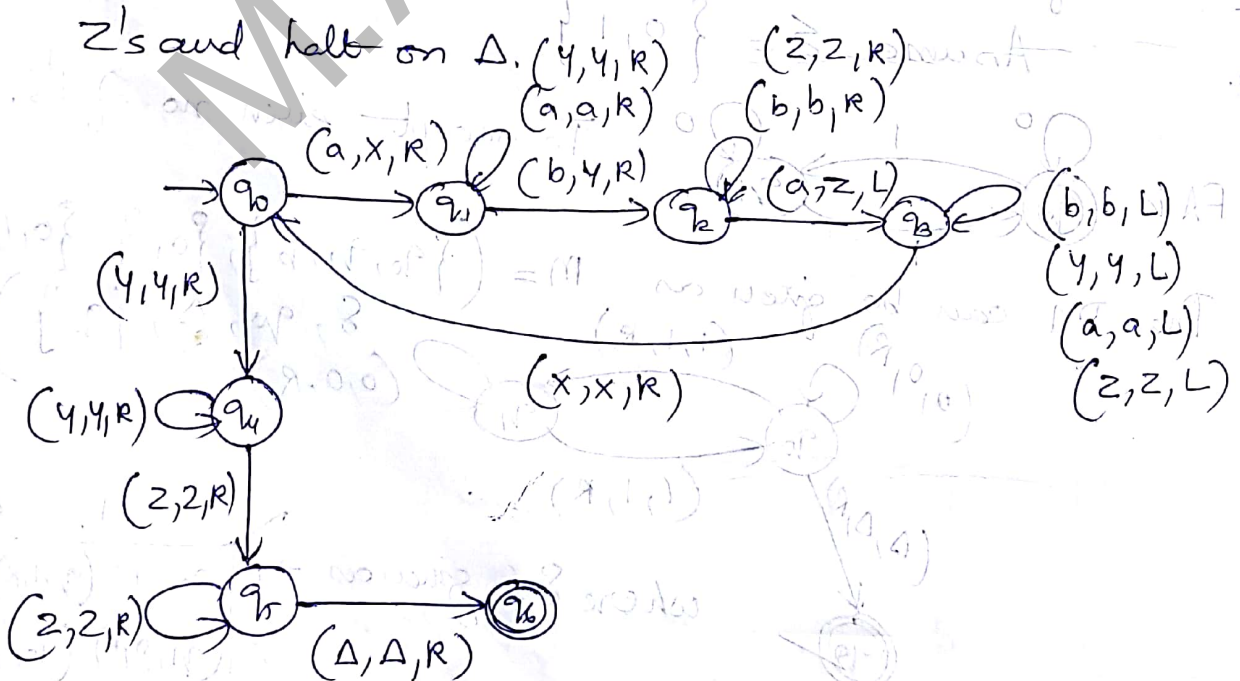 Z's and halt on Δ.
(y,y,R)
(a,a,R)
(z,z,R)
(b,b,R)
(a,x,R)
(b,y,R)
(a,z,L)
q0
q1
q2
q3
(b,b,L)
(y,y,L)
(a,a,L)
(z,z,L)
(y,y,R)
(x,x,R)
(y,y,R)
q4
(z,z,R)
(z,z,R)
q5
(Δ,Δ,R)
q6